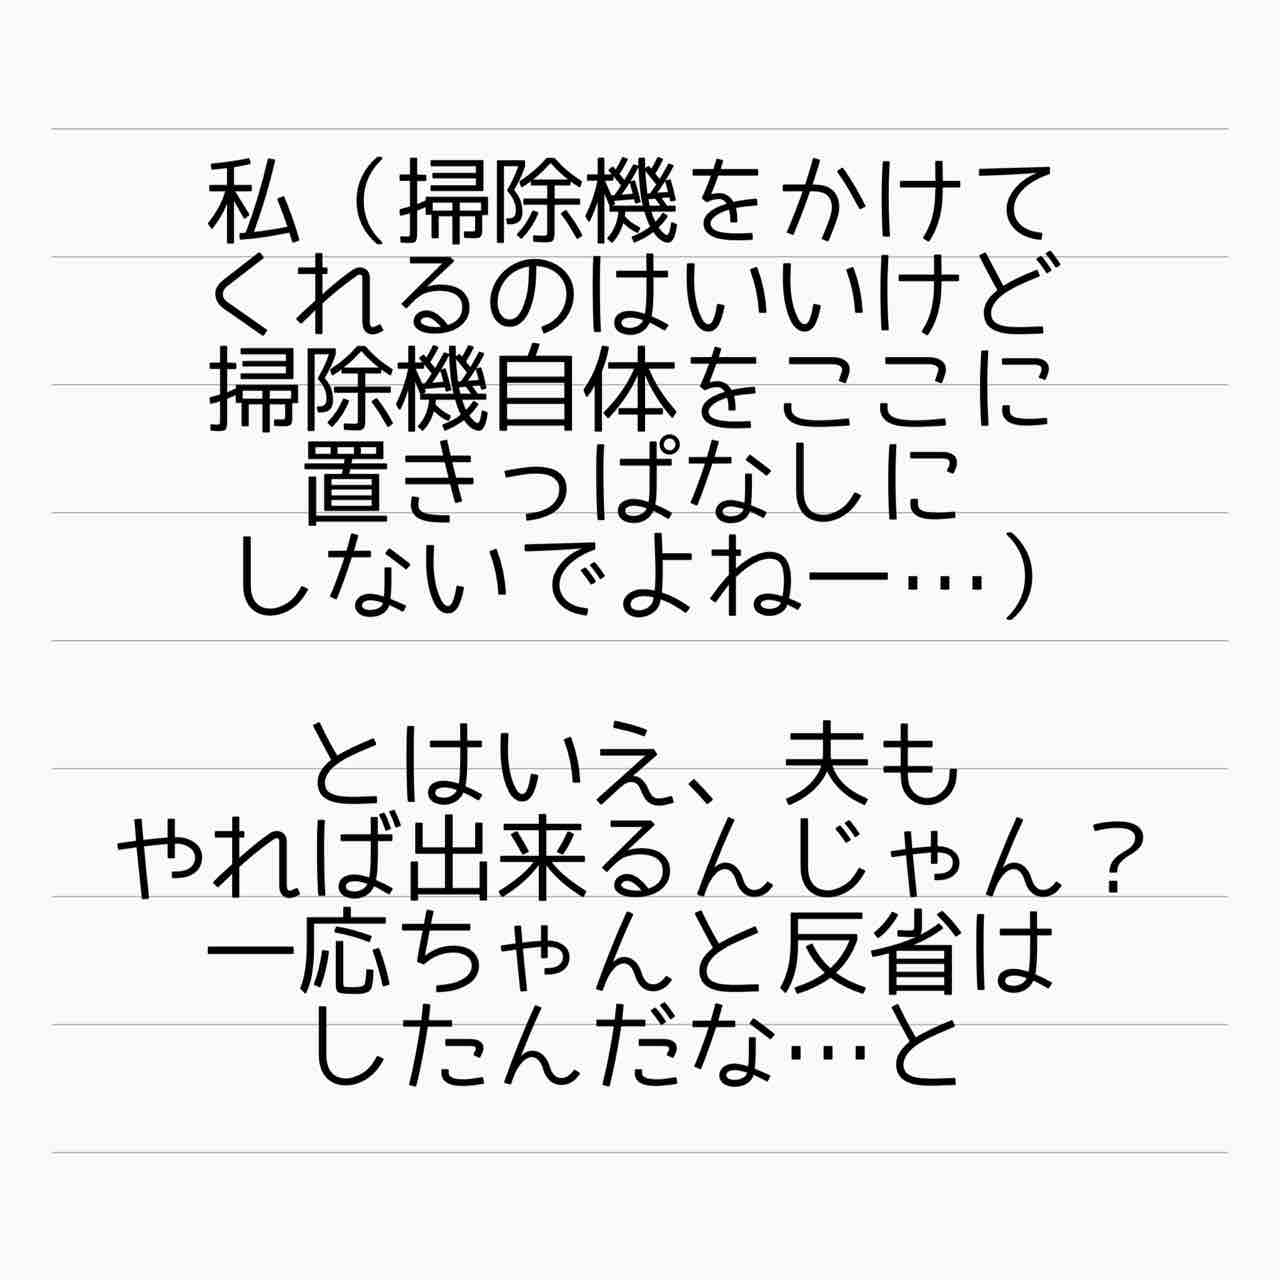 私（掃除機をかけて
くれるのはいいけど
掃除機自体をここに
置きっぱなしに
しないでよねー…）
とはいえ、夫も
やれば出来るんじゃん？
一応ちゃんと反省は
したんだな…と